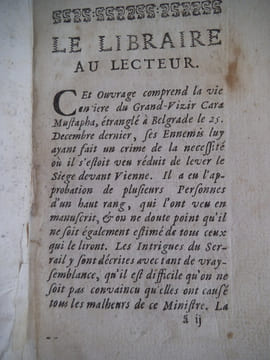 LE LIBRAIRE
AU LECTEUR.
CEt Ouvrage comprend la vie
entiere du Grand-Vizir Cara
Mustapha, étranglé à Belgrade le 25.
Decembre dernier, ses Ennemis luy
ayant fait un crime de la necessité
où il s'estoit veu réduit de lever le
Siege devant Vienne. Il a eu l'ap-
probation de plusieurs Personnes
d'un haut rang, qui l'ont veu en
manuscrit, & on ne doute point qu'il
ne soit également estimé de tous ceux
qui le liront. Les Intrigues du Ser-
rail, y sont décrites avec tant de vray-
semblance, qu'il est difficile qu'on ne
soit pas convaincu qu'elles ont causé
tous les malheurs de ce Ministre. La
ã ij